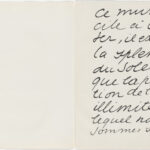 ce mur
cile à
ser, il ex
la splen
du Solei
que la p
tion de l
illimité
lequel no
sommes s